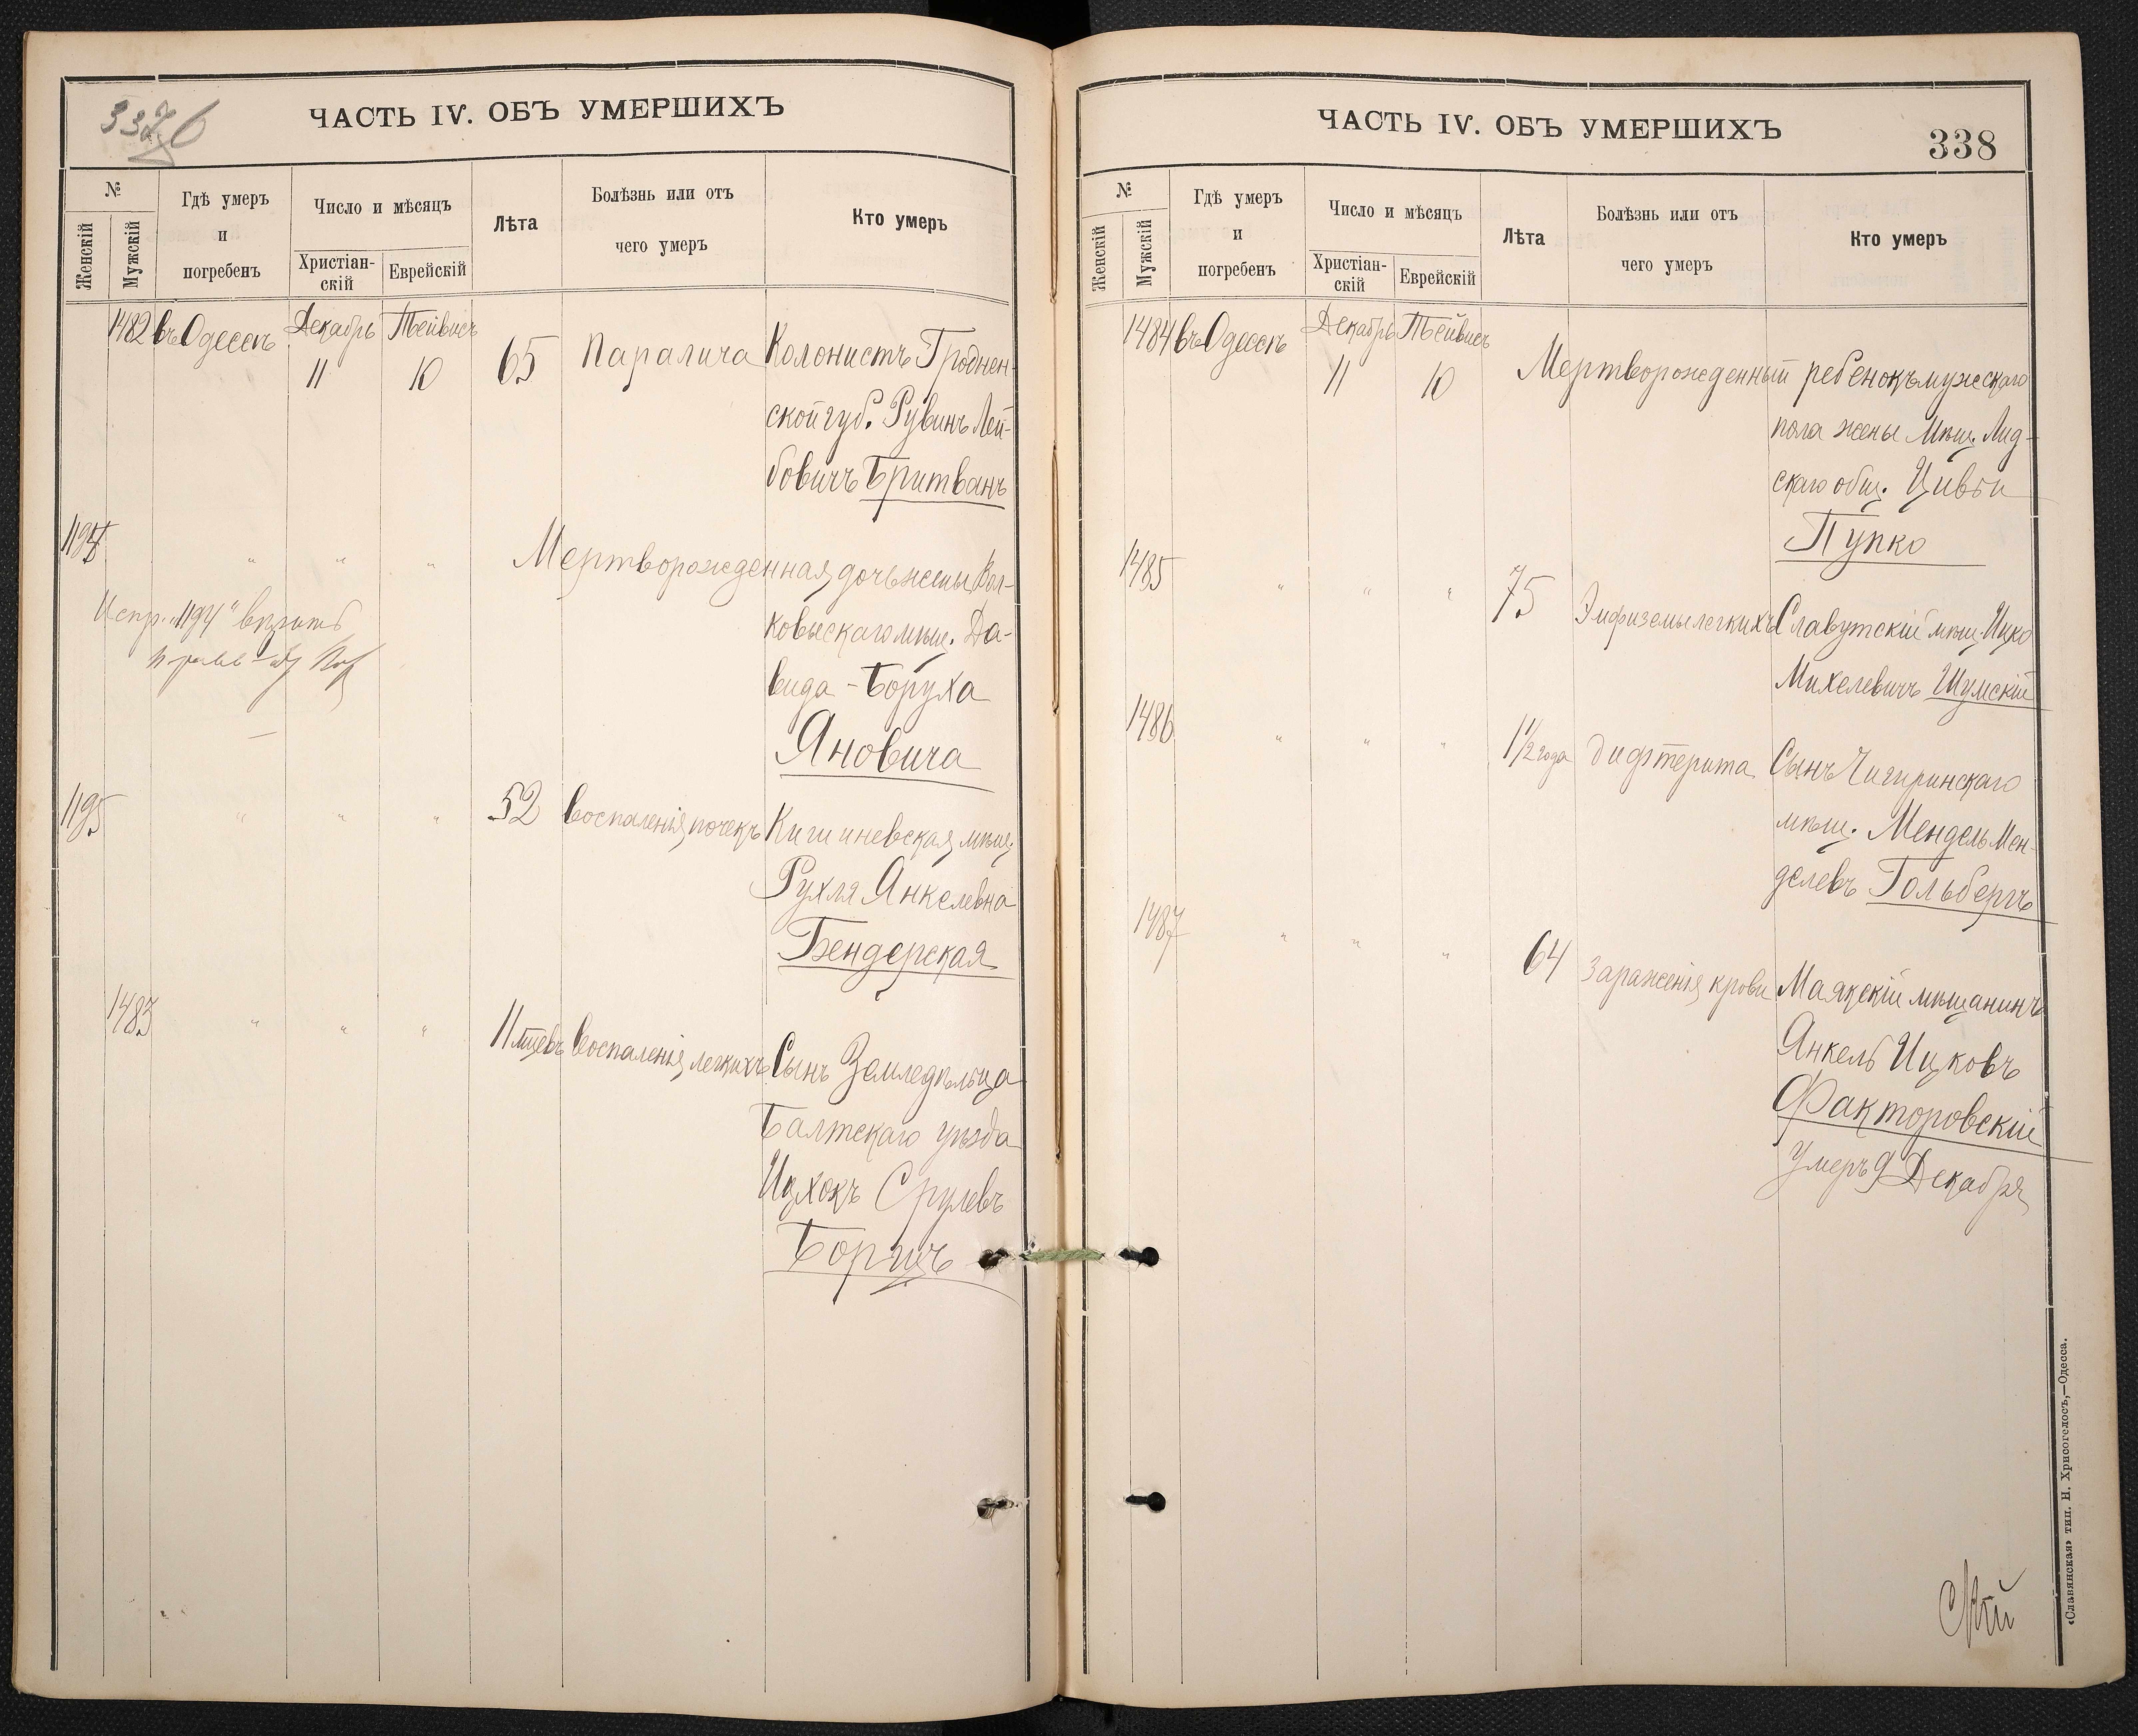 337б
ЧАСТЬ IV. ОБЪ УМЕРШИХЪ
№
Женскій
Мужскій
Гдѣ умеръ
и
погребенъ
Число и мѣсяцъ
Христіан-
скій
Еврейскій
Лѣта
Болѣзнь или отъ
чего умеръ
Кто умеръ
1482 въ Одессѣ Декабрь Тейвисъ
11 10 65 Паралича Колонистъ Гроднен-
ской губ. Рувинъ Лей-
бовичъ Бритванъ
1194 " " " Мертворожденная дочь жены Вол-
ковыскаго мѣщ. Да-
вида-Боруха
Яновича
Испр. "1194" вѣрить
1195 " " " 52 Воспаленія почекъ Кишиневская мѣщ.
Рухля Янкелевна
Бендерская
1483 " " " 11 мцевъ Воспаленія легкихъ Сынъ Земледѣльца
Балтскаго уѣзда
Ицхокъ Срулевъ
Борщъ
ЧАСТЬ IV. ОБЪ УМЕРШИХЪ
338
№
Женскій
Мужскій
Гдѣ умеръ
и
погребенъ
Число и мѣсяцъ
Христіан-
скій
Еврейскій
Лѣта
Болѣзнь или отъ
чего умеръ
Кто умеръ
1484 въ Одессѣ Декабрь Тейвисъ
11 10 Мертворожденный ребенокъ мужескаго
пола жены Мѣщ. Лид-
скаго общ. Цивьи
Пупко
1485 " " " 75 Эмфиземы легкихъ Славутскій мѣщ. Ицко
Михелевичъ Шумскій
1486 " " " 1½ года дифтерита Сынъ Чигиринскаго
мѣщ. Мендель Мен-
делевъ Гольбергъ
1487 " " " 64 Зараженія крови Маякскій мѣщанинъ
Янкель Ицковъ
Факторовскій
Умеръ 9 Декабря
«Славянская» тип. Н. Хрисогелосъ,—Одесса.